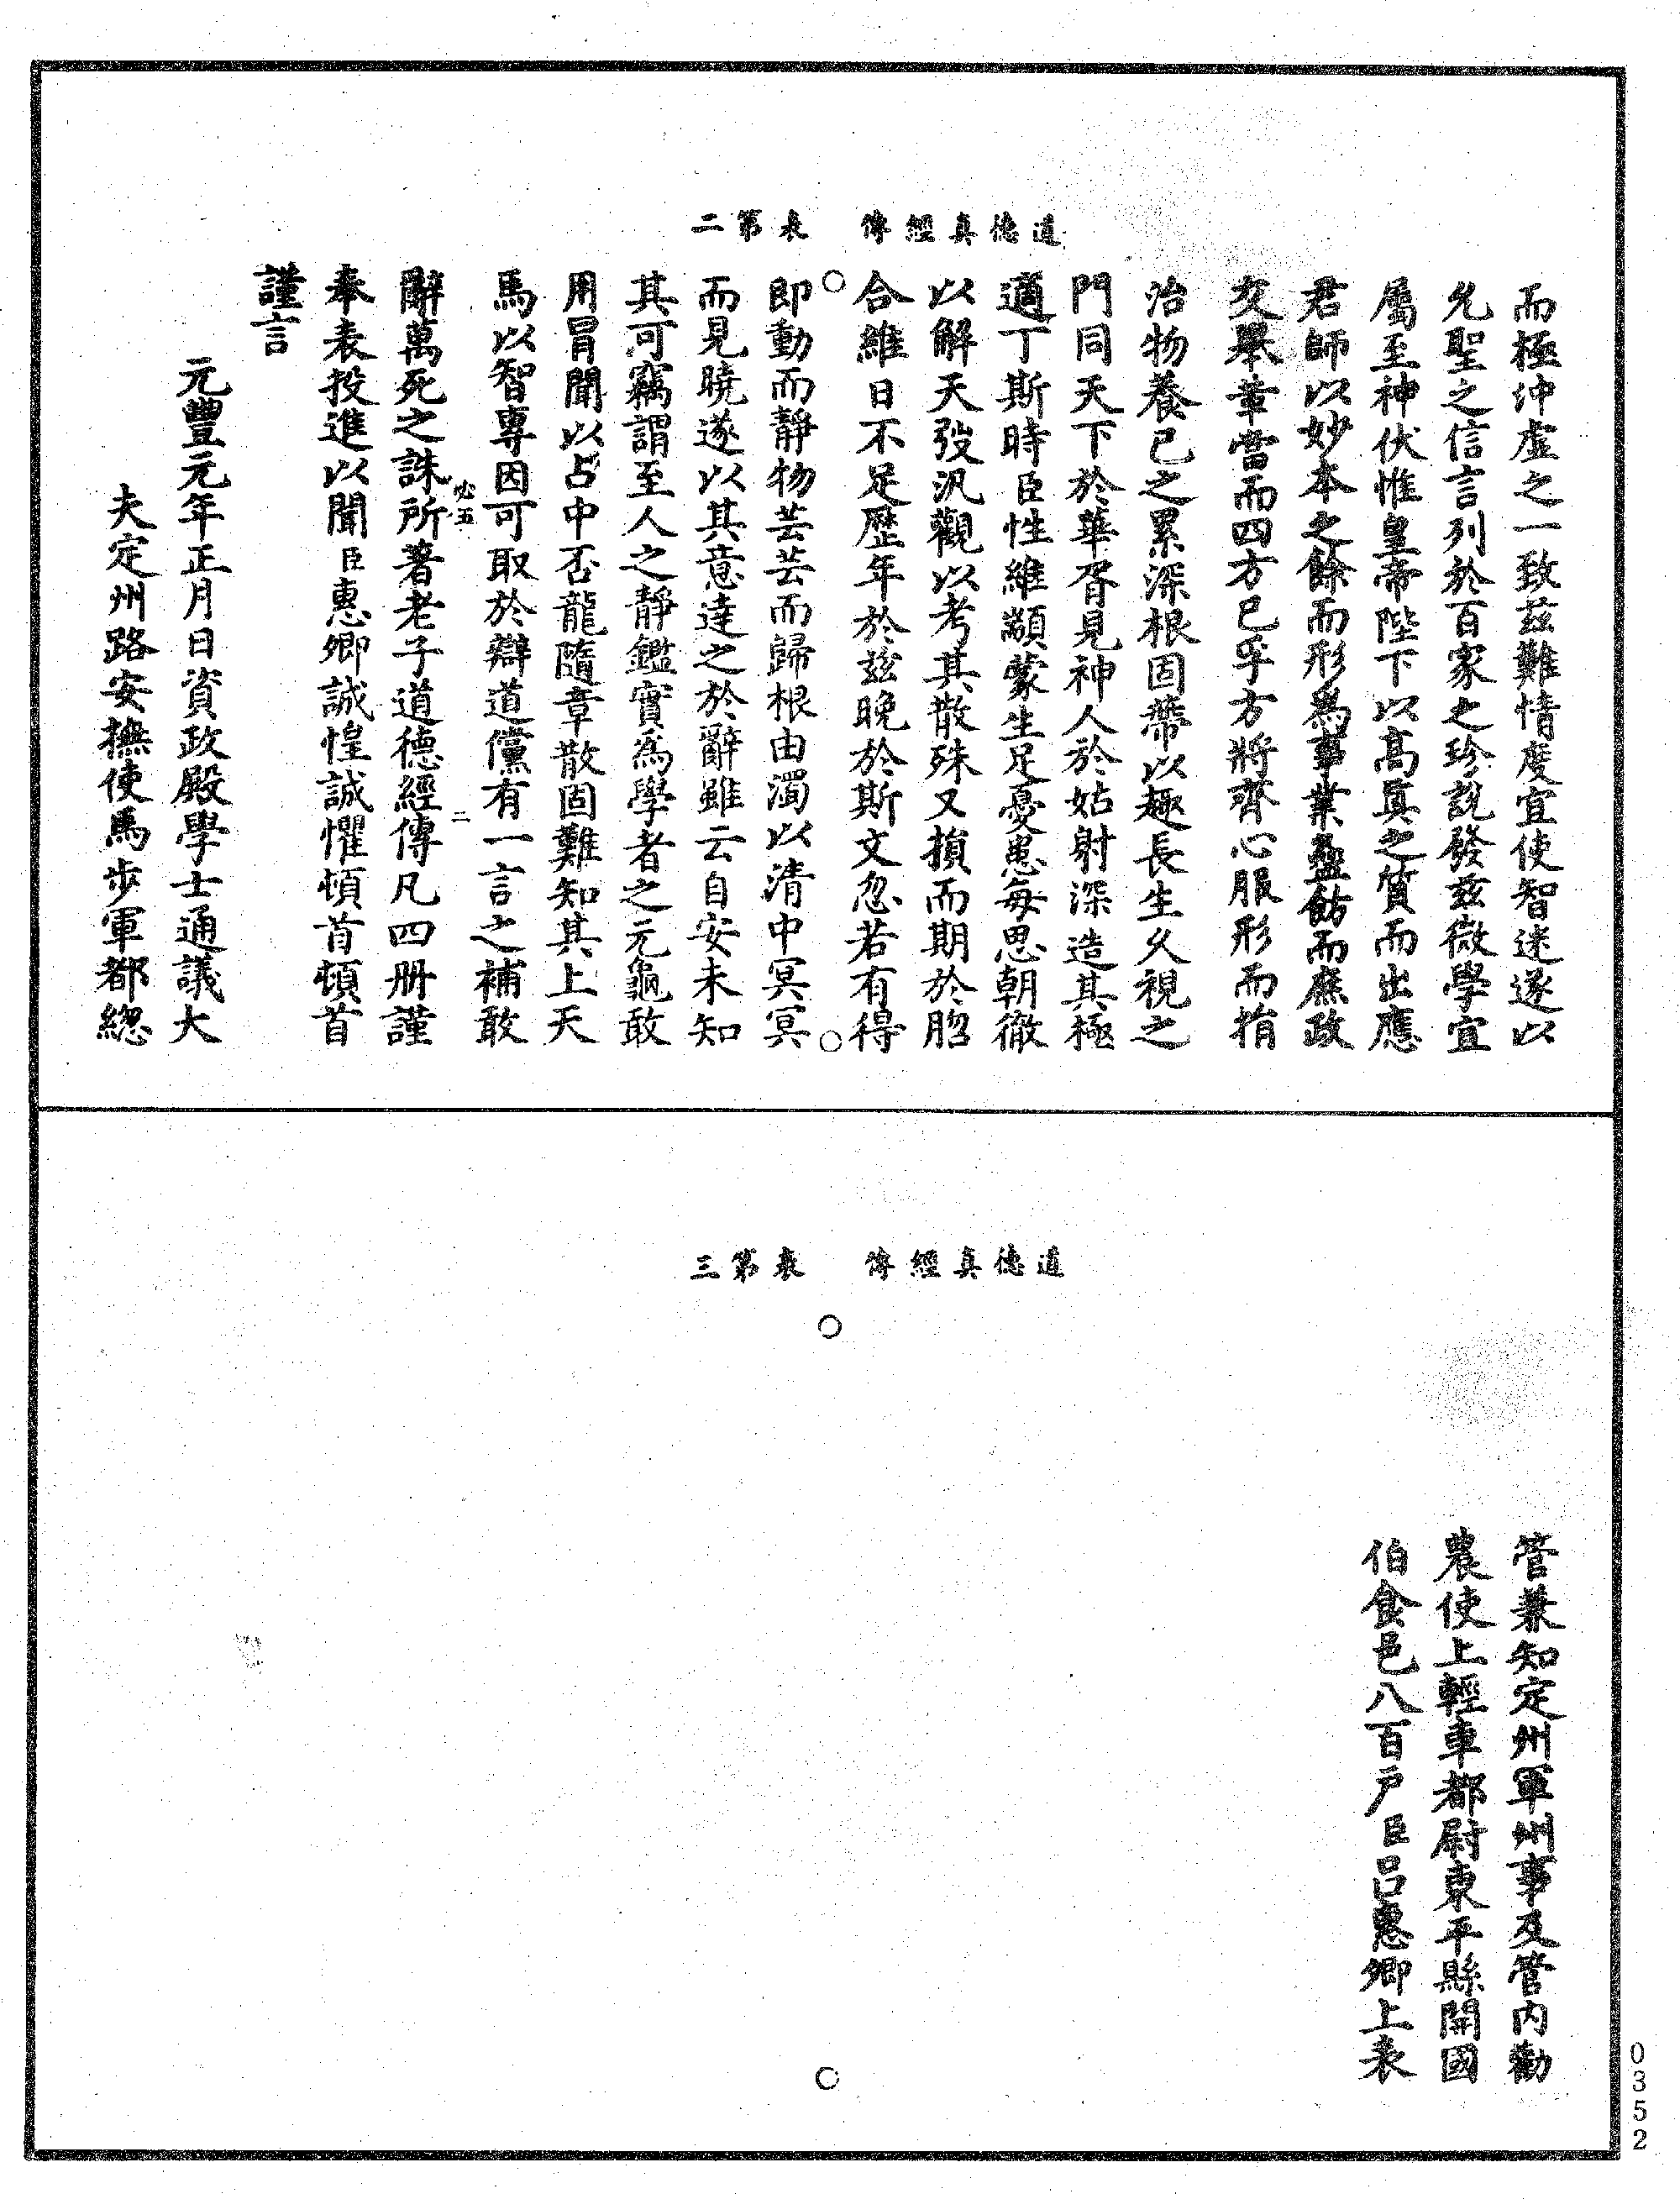 道德真經傳　表第二
而極沖虛之一致茲難情度宜使智迷遂以
允聖之信言列於百家之珍說發茲微學宜
屬至神伏惟皇帝陛下以高真之質而出應
君師以妙本之餘而形為事業蠱飭而廡政
交舉章當而四方已孚方將齊心服形而捐
治物養己之累深根固蔕以趣長生久視之
門同天下於華胥見神人於姑射深造其極
適丁斯時臣性維顓蒙生足憂患每思朝徹
以解天弢汎觀以考其散殊又損而期於脗
合維日不足歷年於茲晚於斯文忽若有得
即動而靜物芸芸而歸根由濁以清中冥冥
而見曉遂以其意達之於辭雖云自安未知
其可竊謂至人之靜鑑實為學者之元龜敢
用冒聞以占中否龍隨章散固難知其上天
馬以智專因可取於辯道儻有一言之補敢
辭萬死之誅所著老子道德經傳凡四冊謹
必五　二
奉表投進以聞臣惠卿誠惶誠懼頓首頓首
謹言
元豐元年正月日資政殿學士通議大
夫定州路安撫使馬步軍都總
道德真經傳　表第三
管兼知定州軍州事及管內勸
農使上輕車都尉東平縣開國
伯食邑八百戶臣呂惠卿上表
0352